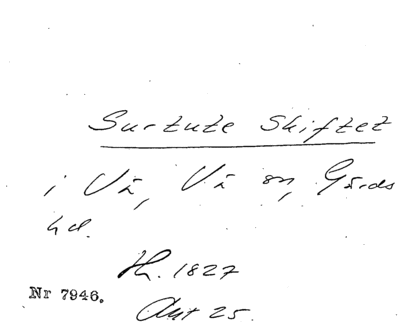 Surtute Skiftet
i Vä, Vä sn, Gärds
hd.
th. 1827
Nr 7946.
Akt 25.